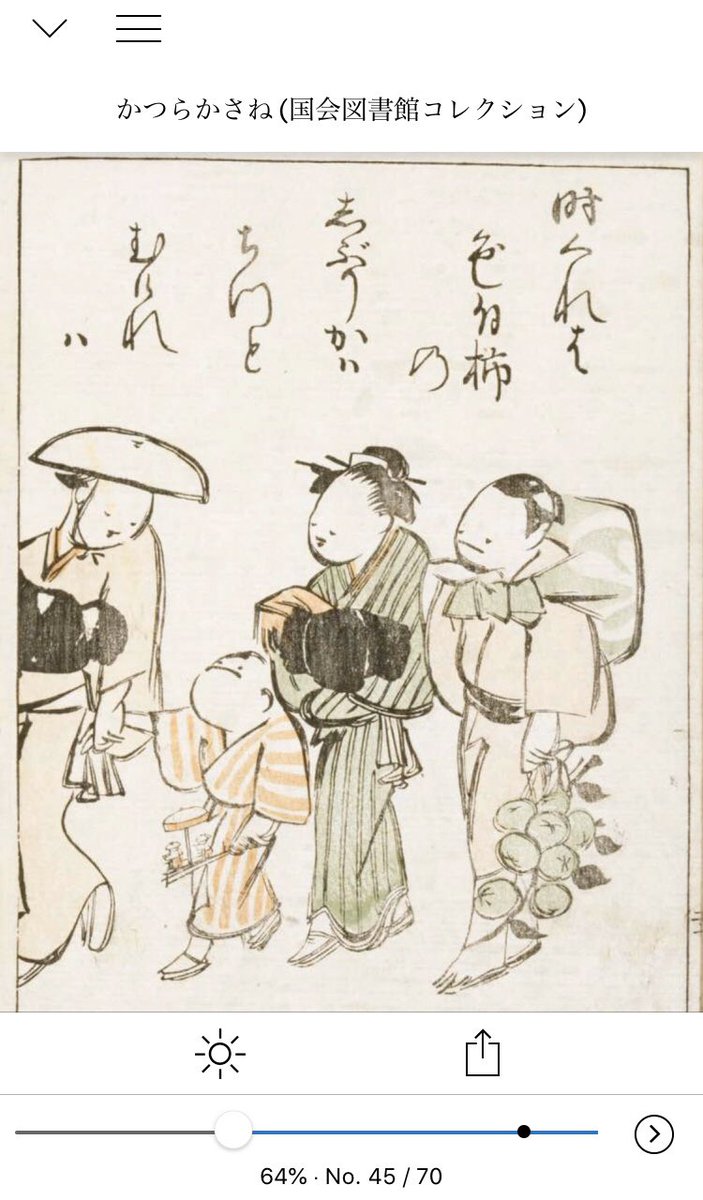 かつらかさね (国会図書館コレクション)
時くれは
色付柿
の
しぶりかハ
ちつと
むけれ
ハ
64% · No. 45 / 70